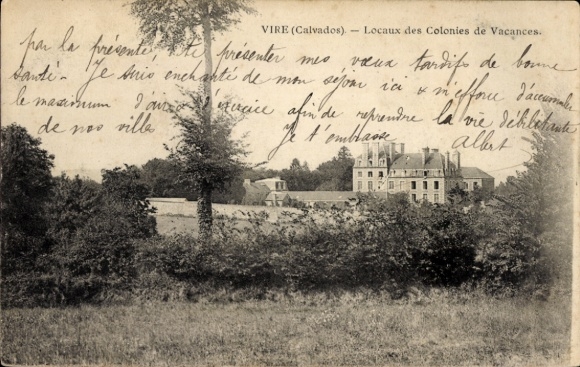 VIRE (Calvados). — Locaux des Colonies de Vacances.
par la présente te présenter mes vœux tardifs de bonne
santé. Je suis enchanté de mon séjour ici & m'efforce d'accumuler
le maximum d'air afin de reprendre la vie débilitante
de nos villes Je t'embrasse Albert